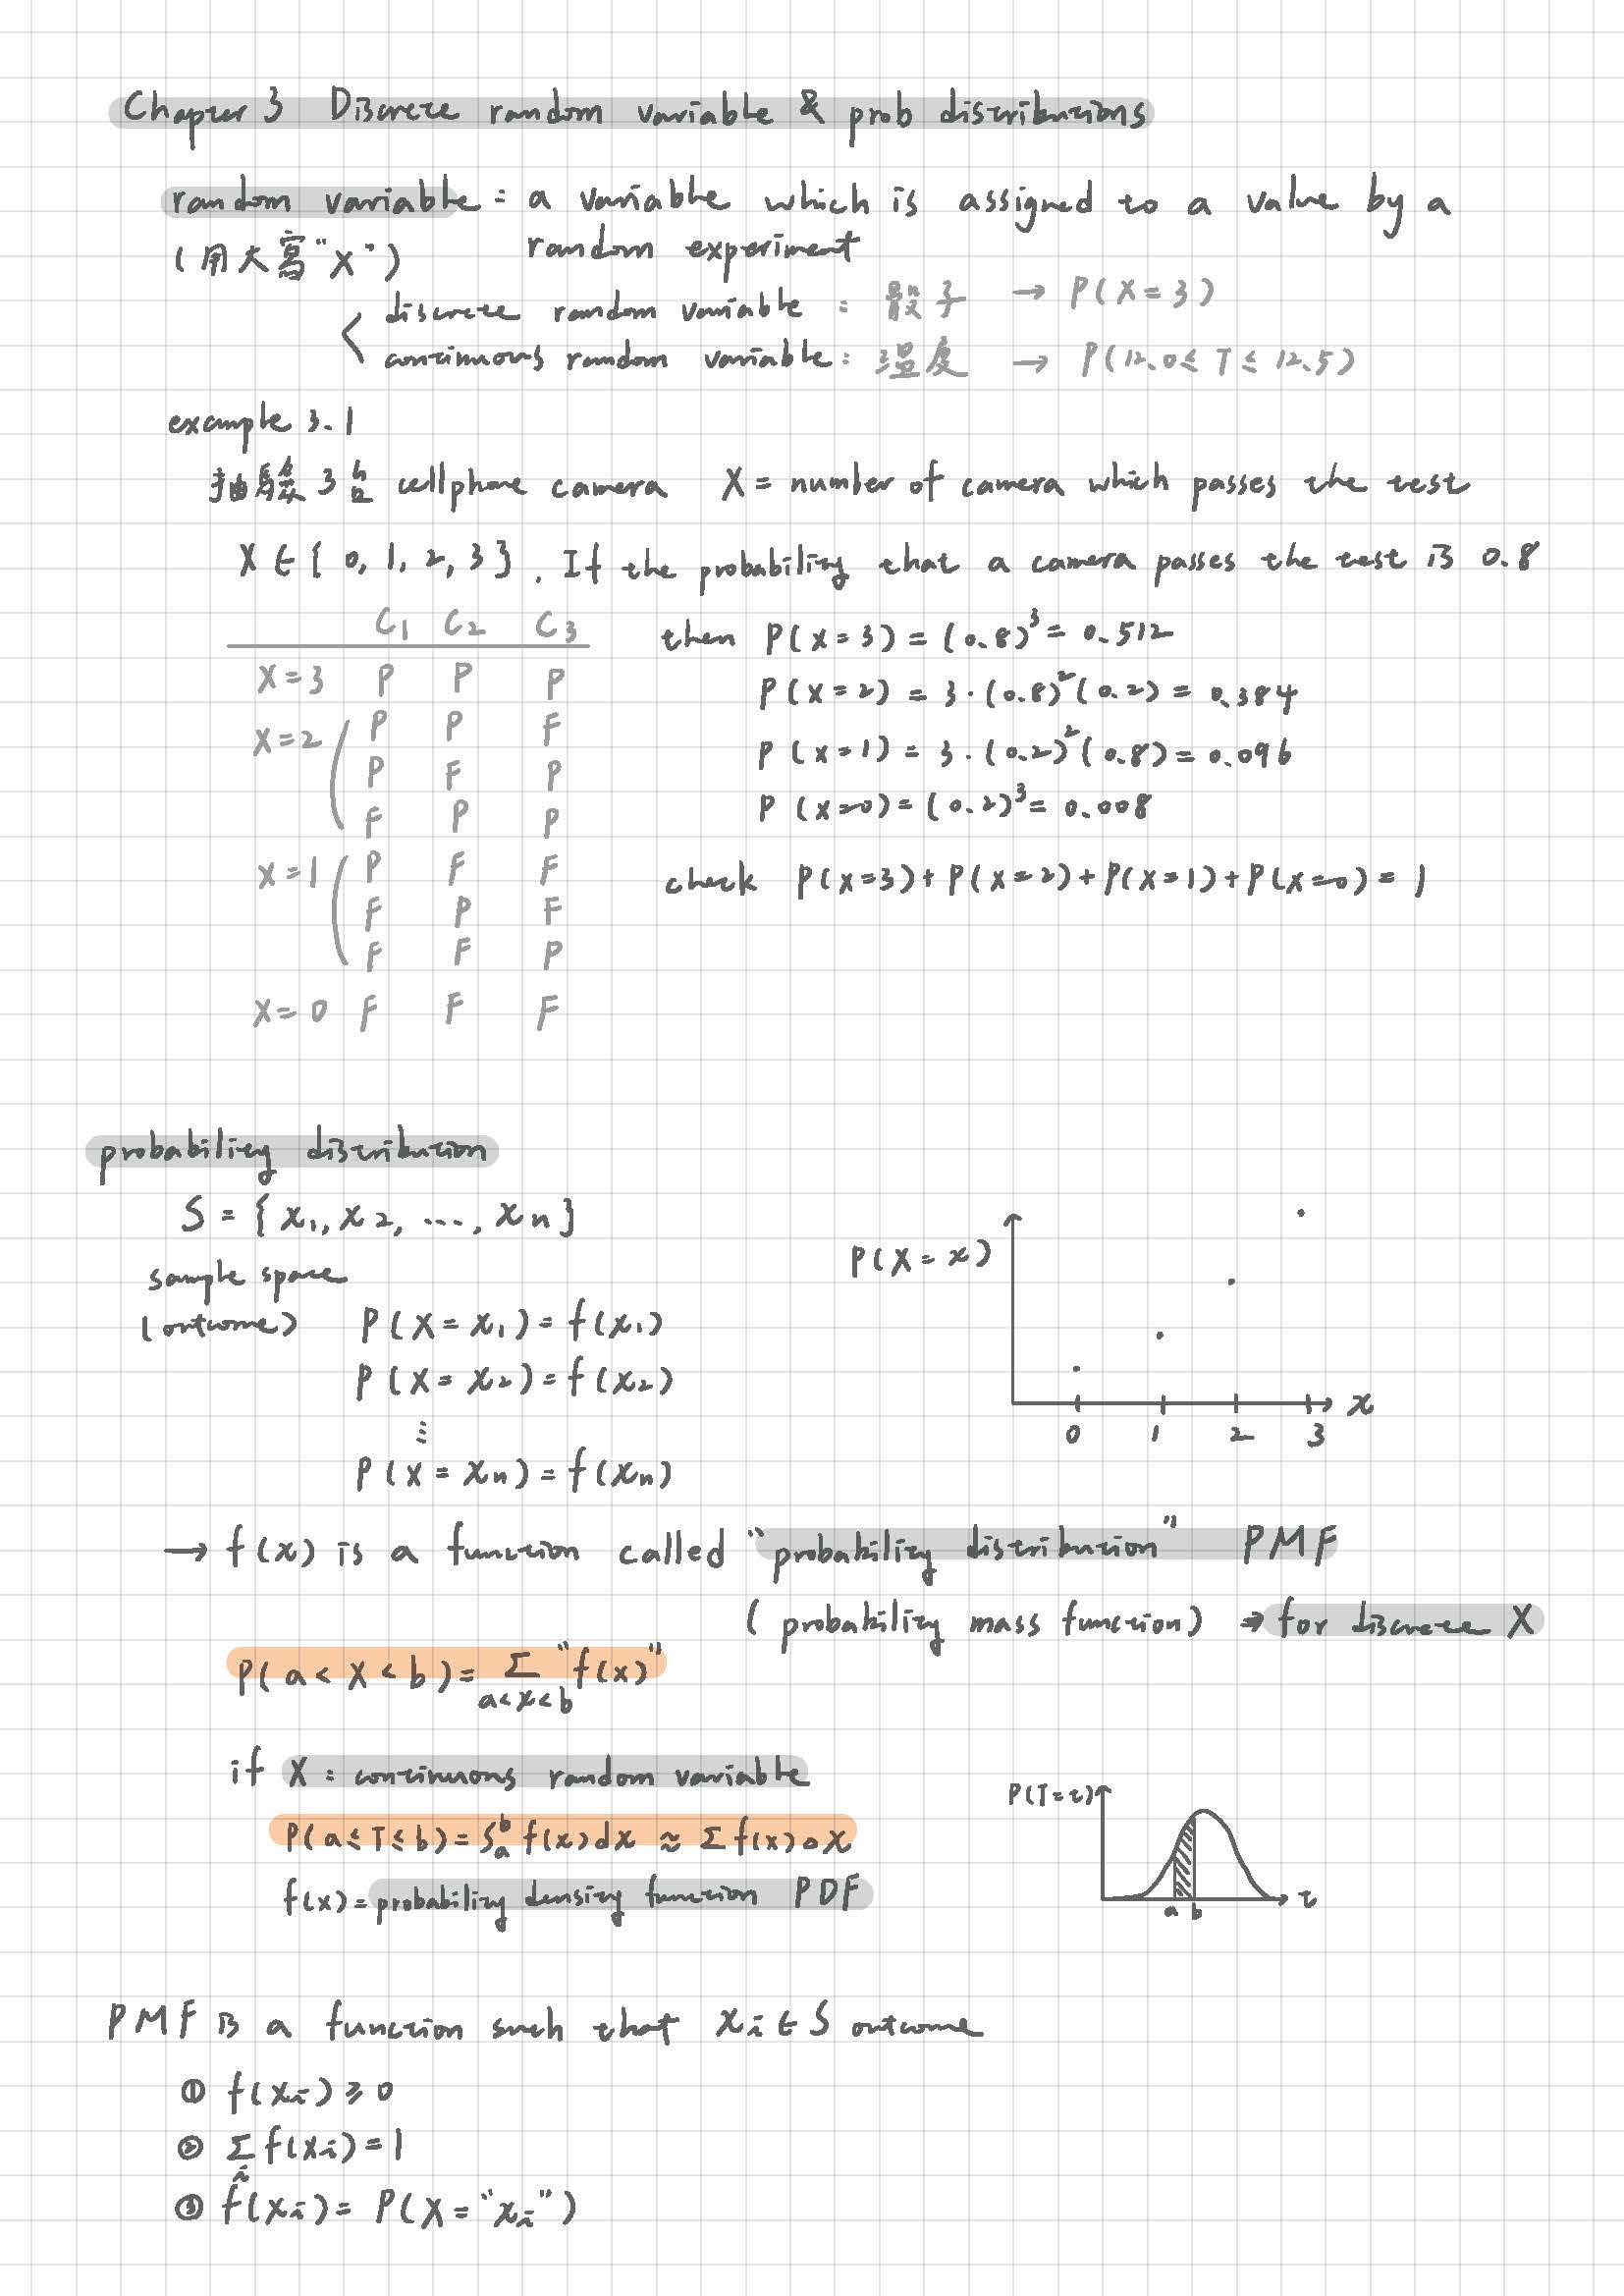 Chapter 3 Discrete random variable & prob distributions
random variable : a variable which is assigned to a value by a
(用大寫"X") random experiment
discrete random variable : 骰子 → P(X=3)
continuous random variable : 溫度 → P(12.0≤T≤12.5)
example 3.1
抽驗3台 cellphone camera X = number of camera which passes the test
X∈{0,1,2,3}. If the probability that a camera passes the test is 0.8
C1 C2 C3
X=3 P P P
X=2 P P F
P F P
F P P
X=1 P F F
F P F
F F P
X=0 F F F
then P(X=3) = (0.8)³ = 0.512
P(X=2) = 3·(0.8)²(0.2) = 0.384
P(X=1) = 3·(0.2)²(0.8) = 0.096
P(X=0) = (0.2)³ = 0.008
check P(X=3)+P(X=2)+P(X=1)+P(X=0) = 1
probability distribution
S = {x₁, x₂, ..., xₙ}
sample space
(outcome) P(X=x₁) = f(x₁)
P(X=x₂) = f(x₂)
⋮
P(X=xₙ) = f(xₙ)
P(X=x)
x
0 1 2 3
→ f(x) is a function called "probability distribution" PMF
(probability mass function) ⇒ for discrete X
P(a<X<b) = Σ "f(x)"
a<x<b
if X : continuous random variable
P(a≤T≤b) = ∫ₐᵇ f(x)dx ≈ Σ f(x)△x
f(x) = probability density function PDF
P(T=t)
a b
t
PMF is a function such that xᵢ∈S outcome
① f(xᵢ) ≥ 0
② Σ f(xᵢ) = 1
i
③ f(xᵢ) = P(X="xᵢ")